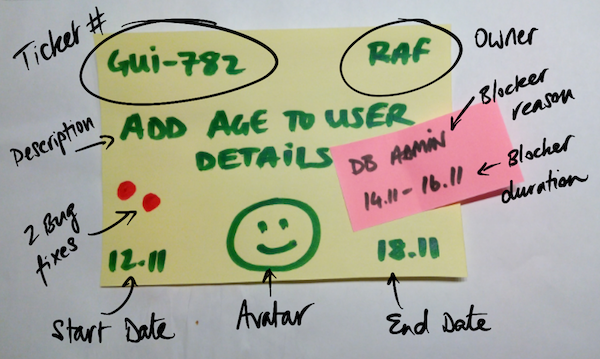 Ticket #
GUI-782
RAF
Owner
Description
ADD AGE TO USER
DETAILS
Blocker
reason
DB ADMIN
14.11-16.11
Blocker
duration
2 Bug
fixes
12.11
18.11
Start Date
Avatar
End Date